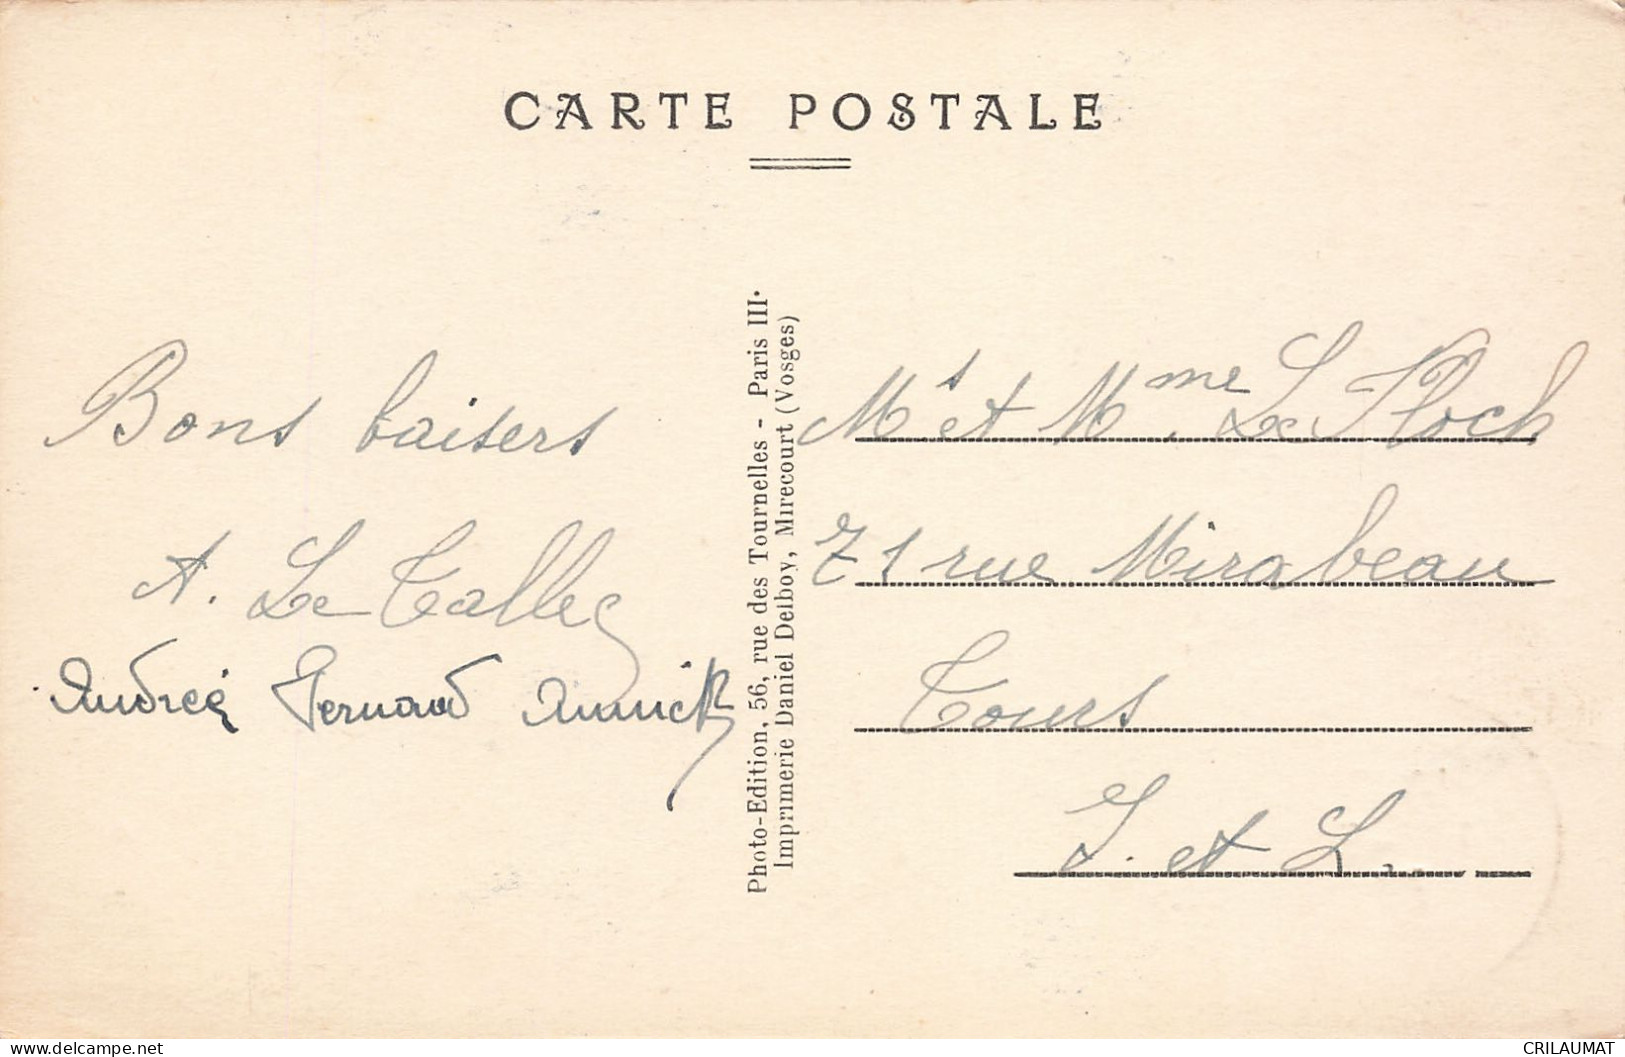 CARTE POSTALE
Bons baisers
A. Le Tallec
Andrée Fernand Annick
Photo-Edition, 56, rue des Tournelles - Paris III.
Imprimerie Daniel Delboy, Mirecourt (Vosges)
Mr et Mme Le Floch
71 rue Mirabeau
Tours
I. et L.
www.delcampe.net
CRILAUMAT